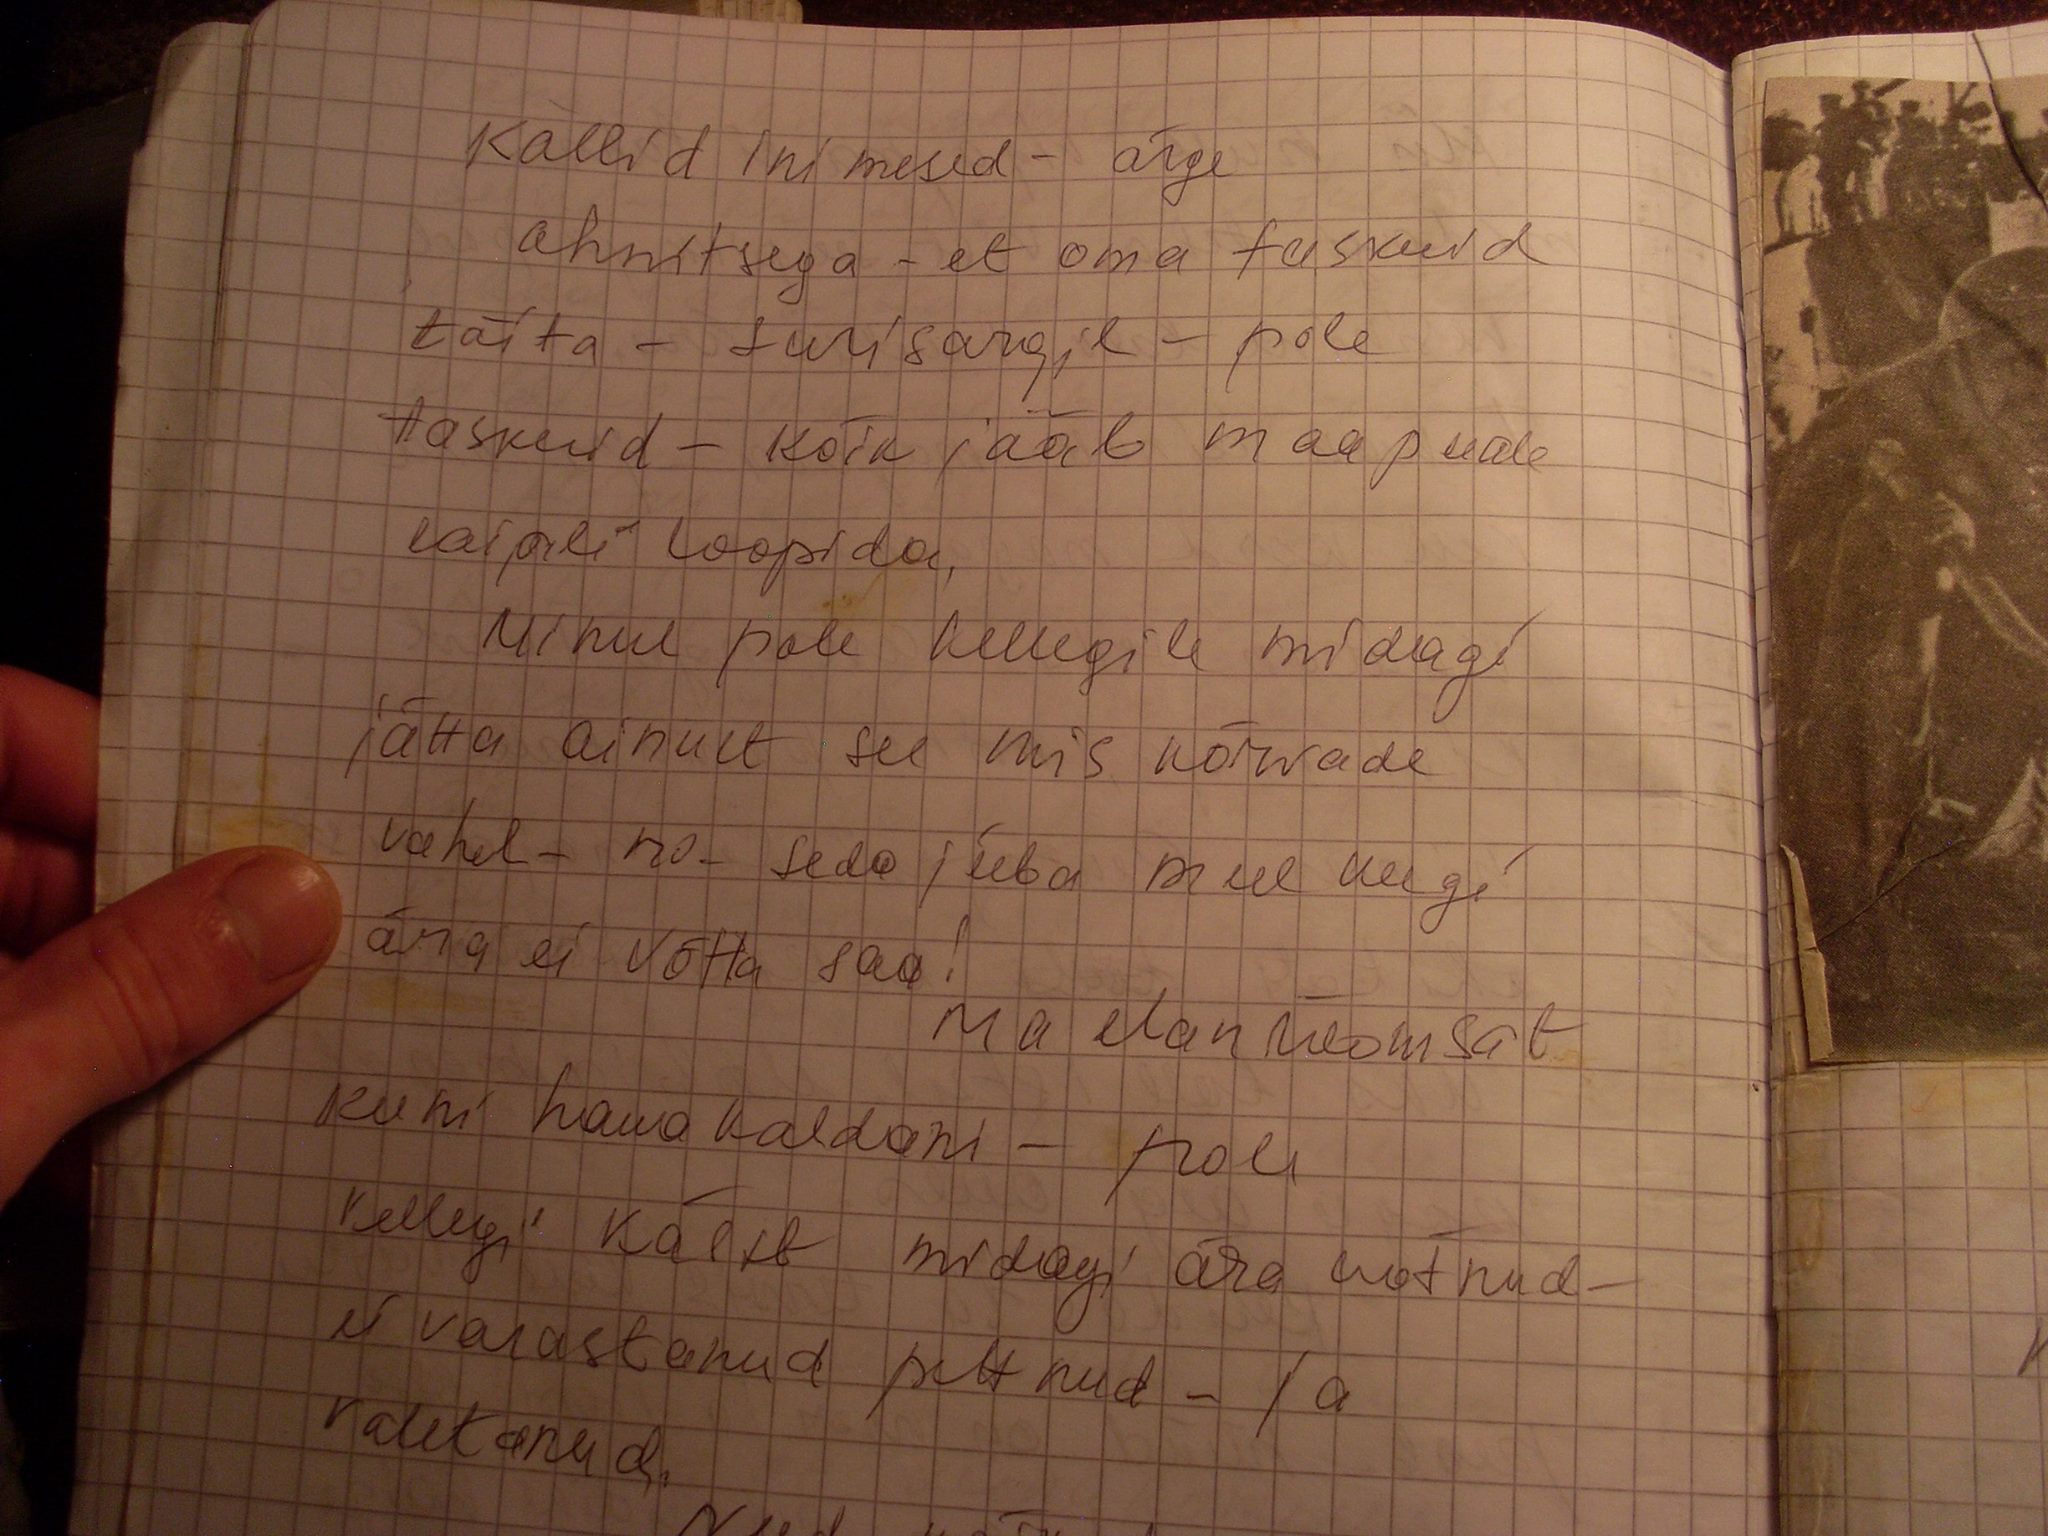 Kallid Inimesed - ärge
ahnitsega - et oma taskuid
täita - surisärgil - pole
taskuid - kõik jääb maapeale
laipili loopida,
Minul pole kellegile midagi
jätta ainult see mis kõrvade
vahel - no - seda juba mul keegi
ära ei võtta saa!
Ma elan rõõmsalt
kuni hauakaldani - pole
kellegi käest midagi ära võtnud -
ei varastanud pettnud - ja
valetanud.